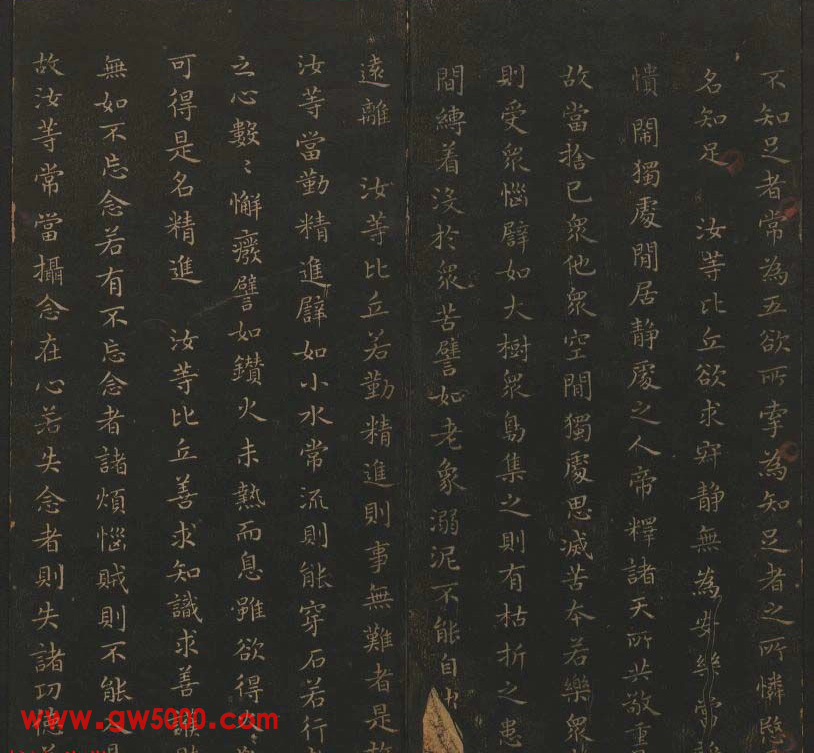 不知足者常為五欲所牽為知足者之所憐愍
名知足 汝等比丘欲求寂静無為安樂當
憒閙獨處閒居静處之人帝釋諸天所共敬重
故當捨已衆他衆空閒獨處思滅苦本若樂衆
則受衆惱譬如大樹衆鳥集之則有枯折之患
間縛着没於衆苦譬如老象溺泥不能自出
遠離 汝等比丘若勤精進則事無難者是故
汝等當勤精進譬如小水常流則能穿石若行
之心數〻懈癈譬如鑽火未熱而息雖欲得火
可得是名精進 汝等比丘善求知識求善護
無如不忘念若有不忘念者諸煩惱賊則不能入是
故汝等常當攝念在心若失念者則失諸功德
www.gw5000.com